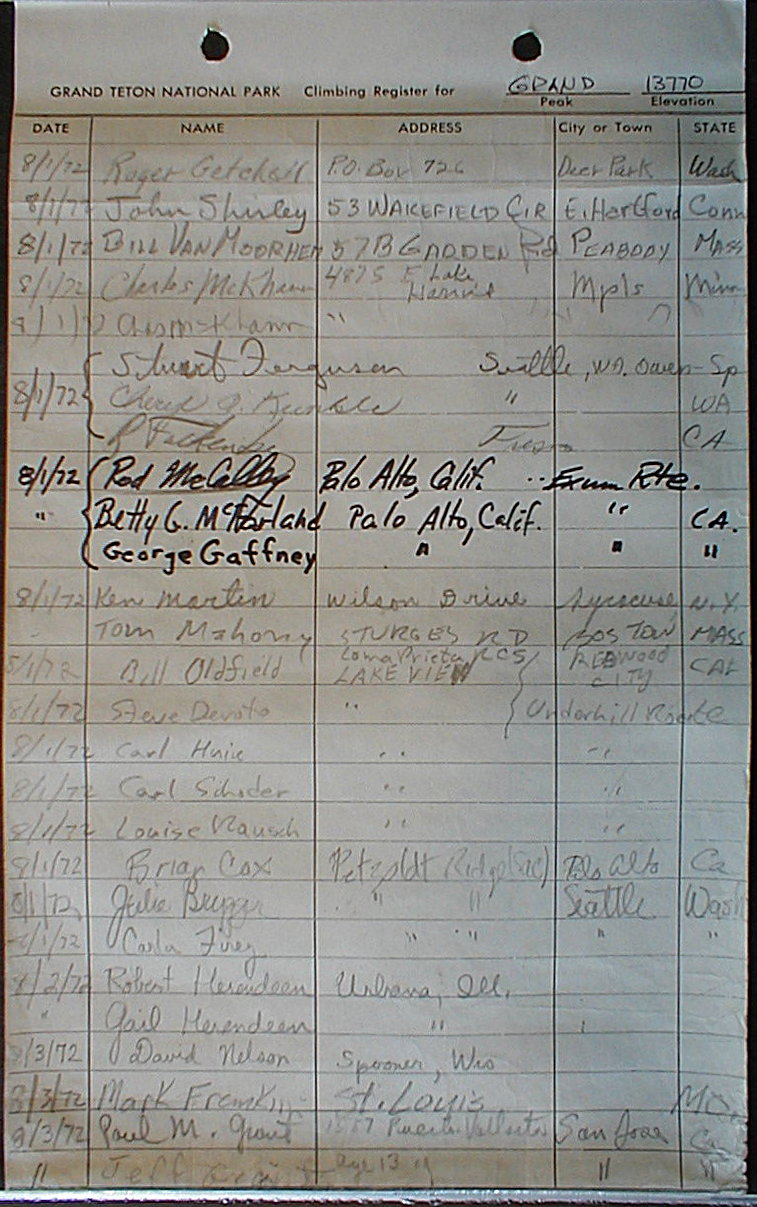 GRAND TETON NATIONAL PARK Climbing Register for GRAND 13770
Peak Elevation
DATE NAME ADDRESS City or Town STATE
8/1/72 Roger Getchell P.O. Box 726 Deer Park Wash
8/1/72 John Shirley 53 WAKEFIELD CIR E. Hartford Conn
8/1/72 BILL VAN MOORHEM 57B GADDEN Rd PEABODY MASS
8/1/72 Charles McKhann 4875 E Lake Harriet Mpls Minn
8/1/72 "
Stuart Ferguson Seattle, WA. Owen-Sp
8/1/72 Cheryl " WA
Fresno CA
8/1/72 Rod McCalley Palo Alto, Calif. Exum Rte.
" Betty G. McFarland Palo Alto, Calif. " CA.
George Gaffney " " "
8/1/72 Ken Martin Wilson Drive Syracuse N.Y.
Tom Mahony STURGES RD BOSTON MASS
8/1/72 Bill Oldfield Loma Prieta RCS LAKE VIEW REDWOOD CITY CAL
8/1/72 Steve Devoto " Underhill Route
8/1/72 Carl " "
8/1/72 Carl " "
8/1/72 Louise Rausch " "
8/1/72 Brian Cox Petzoldt Ridge Palo Alto Ca
8/1/72 Julie " " Seattle Wash
8/1/72 Carla Firey " " " "
8/2/72 Robert Herendeen Urbana, Ill.
" Gail Herendeen "
8/3/72 David Nelson Spooner, Wis
8/3/72 Mark St. Louis Mo.
8/3/72 Paul M. Grant Puerto Vallarta San Jose Ca
" Jeff age 13 " " "